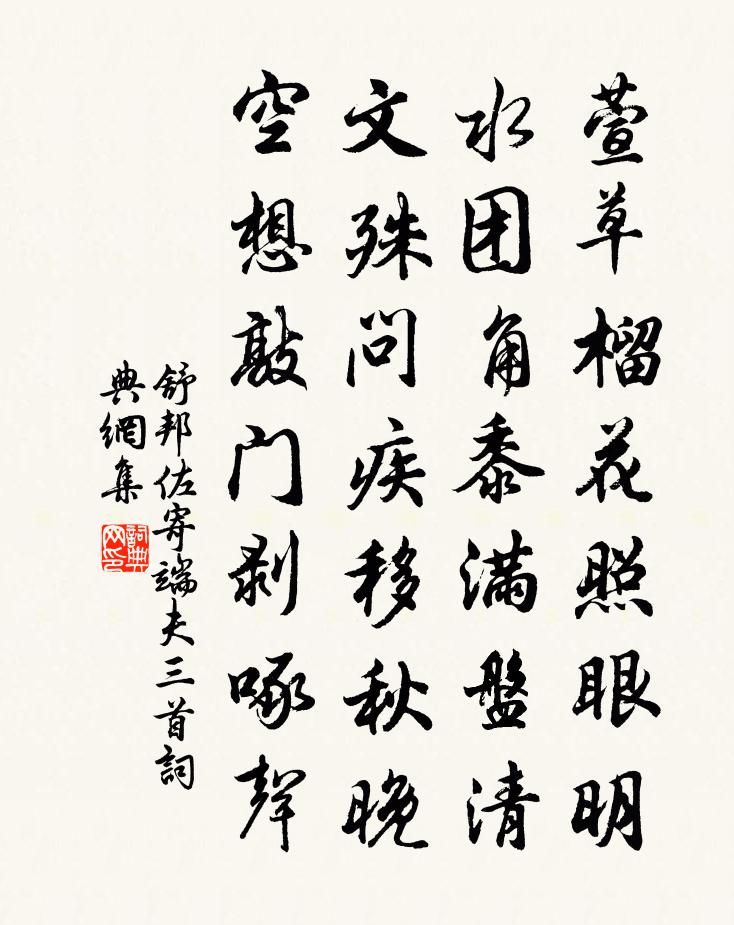 萱草榴花照眼明
水团角黍满盤清
文殊问疾移秋晚
空想敲门剥啄聲
舒邦佐寄端夫三首詞
典網集
詞典
网印